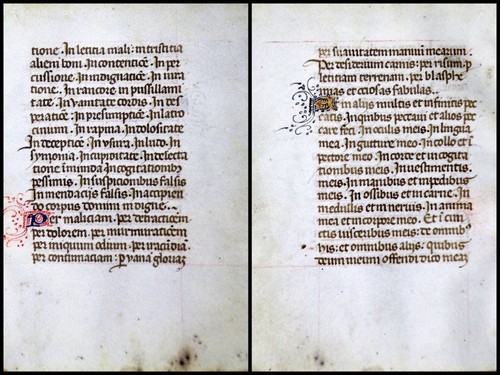 tione. In leticia mali: in tristicia
alieni boni. In contencõe. In per
cussione. In indignacõe. In iura
tione. In rancore in pusillami
tate. In vanitate cordis. In des
peratiõe. In presumptiõe. In latro
cinium. In rapina. In dolositate
In deceptiõe. In usura. In luto. In
symonia. In cupiditate. In delecta
cione inmunda. In cogitationibus
pessimis. In suspicionibus falsis
In mendacijs falsis. In accipien
do corpus domini indigne.
Per maliciam. per detractiõem
per dolorem. per murmuratiõem
per iniquum odium. per iracũdiam
per contumaciam: per vana gloriaz
per suavitatem manuum mearum.
Per desiderium carnis: per risum. p
lentiam terrenam. per blasphe
mias et ociosas fabulas.
In alijs multis et infinitis pec
catis. In quibus peccavi et alios pec
care feci. In oculis meis. In lingua
mea. In gutture meo. In collo et i
pectore meo. In corde et in cogita
tionibus meis. In vestimentis.
meis. In manibus et in pedibus
meis. In ossibus et in carne. In
medullis et in nervis. In anima
mea et in corpore meo. Et i cun
ctis visceribus meis: de omnibus
his: et omnibus alijs: quibus
deum meum offendi dico meaz